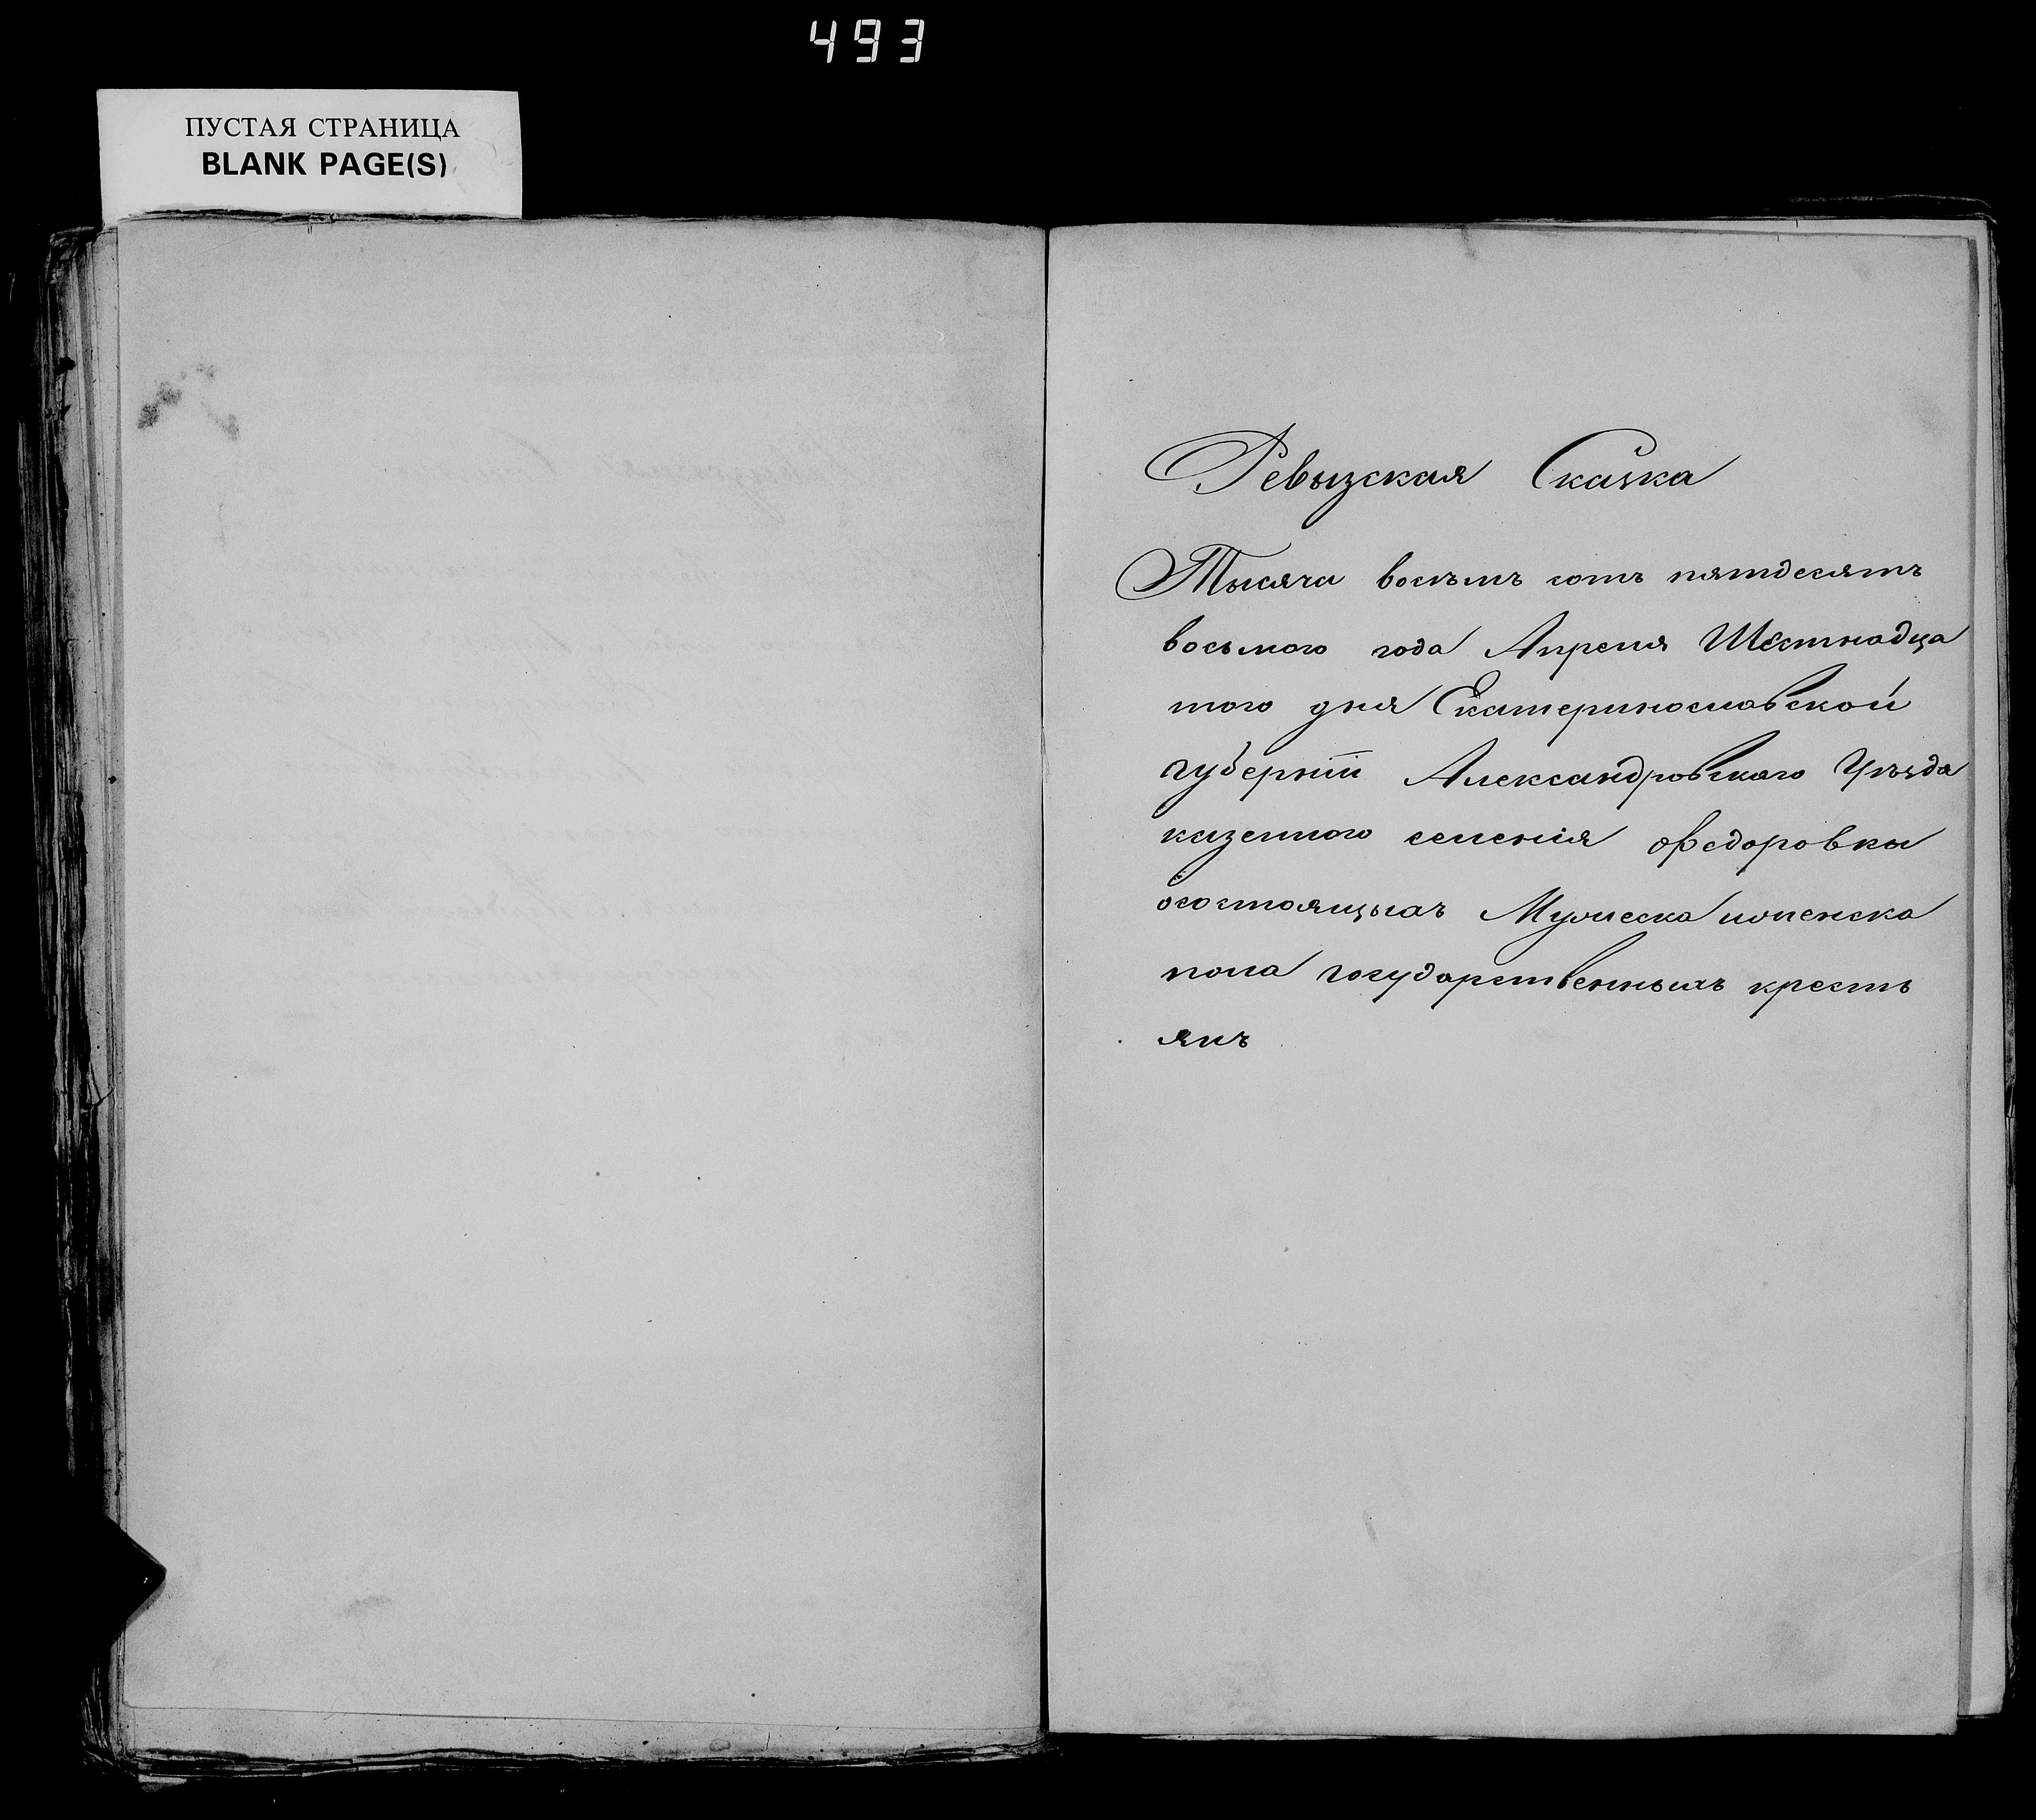 493
ПУСТАЯ СТРАНИЦА
BLANK PAGE(S)
Ревызская Сказка
Тысяча восъмъ сотъ пятдесятъ
восьмого года Апреля Шестнадца
того дня Екатеринославской
губернiи Александровскаго Уъзда
казенного селенiя Федоровки
осостоящыхъ Мужеска иженска
пола государственныхъ кресть
янъ